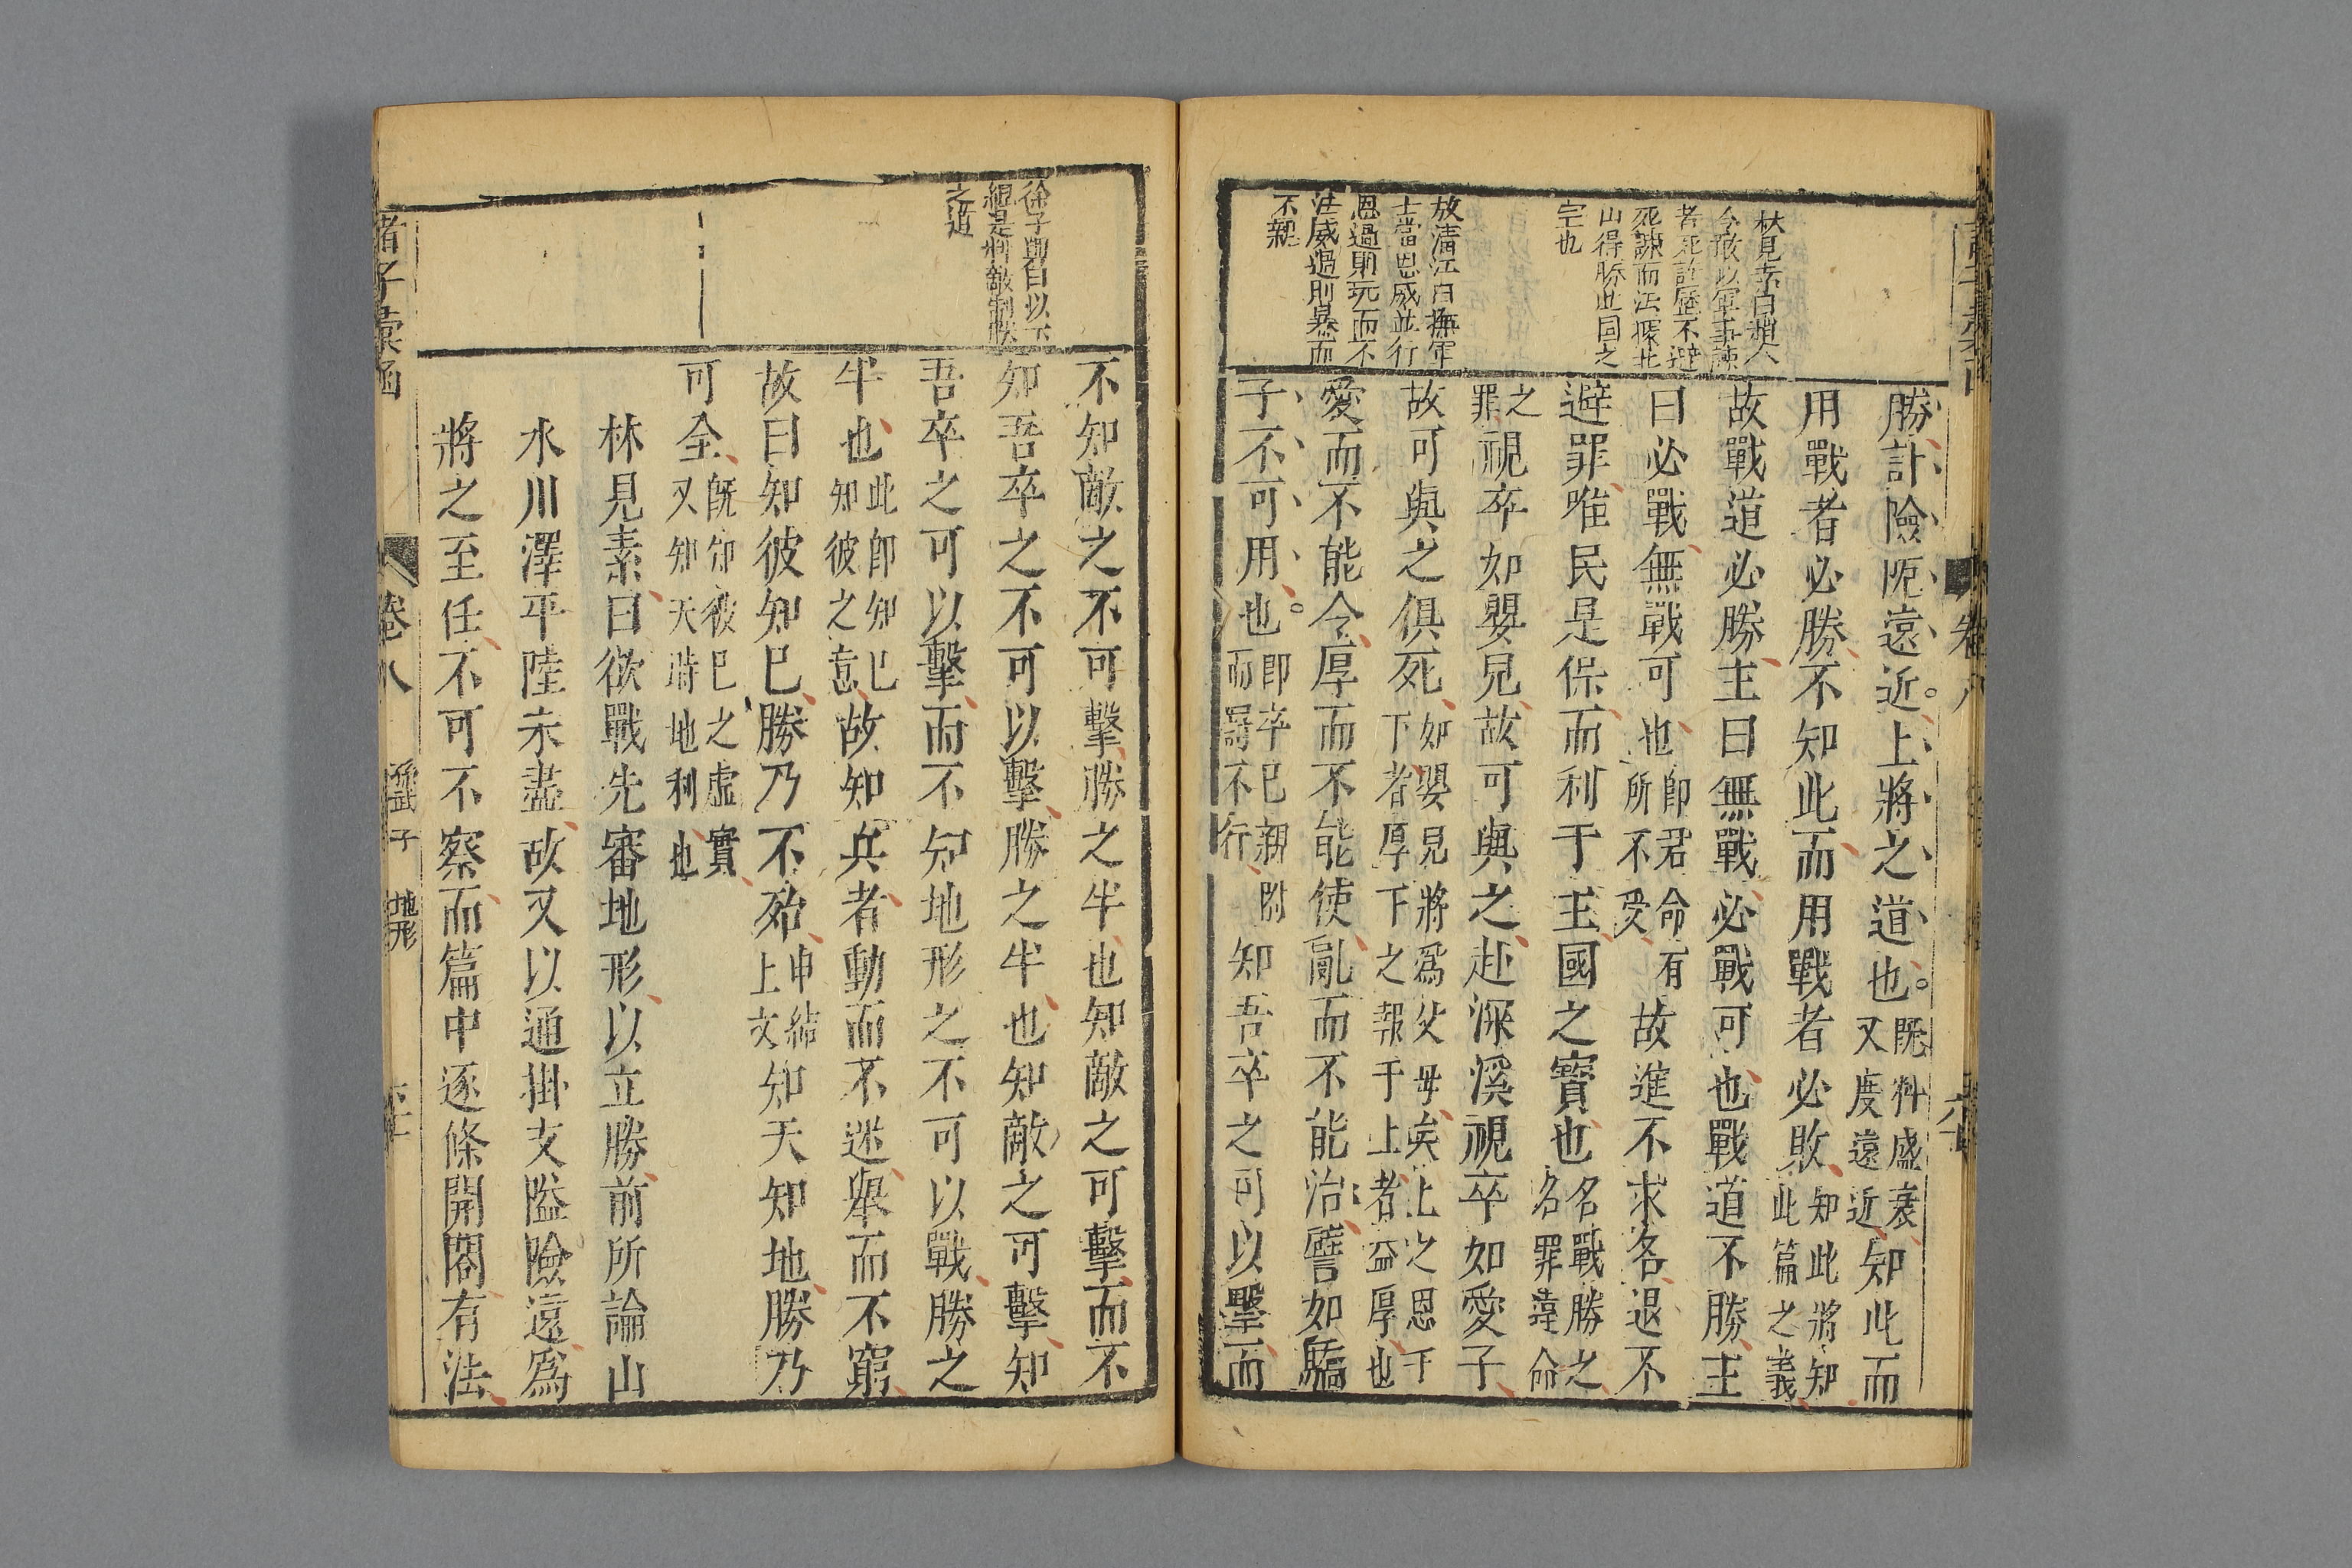 勝計險阨遠近上將之道也既料盛衰又度遠近知此而
用戰者必勝不知此而用戰者必敗知此將知此篇之義
故戰道必勝主曰無戰必戰可也戰道不勝主
曰必戰無戰可也即君命有所不受故進不求名退不
避罪唯民是保而利于主國之寶也名戰勝之名罪違命
之罪視卒如嬰兒故可與之赴深溪視卒如愛子
故可與之俱死如嬰兒將爲父母矣上之恩于下者厚下之報于上者益厚也
愛而不能令厚而不能使亂而不能治譬如驕
子不可用也即卒已親附而罰不行知吾卒之可以擊而
林見素曰趙人
令敢以軍事諫
者死許歷不避
死諫而法據北
山得勝此同之
宝也
故清江曰撫軍
士當恩威並行
恩過則玩而不
法威過則暴而
不親
卷八
不知敵之不可擊勝之半也知敵之可擊而不
知吾卒之不可以擊勝之半也知敵之可擊知
吾卒之可以擊而不知地形之不可以戰勝之
半也此即知已知彼之意故知兵者動而不迷舉而不窮
故曰知彼知巳勝乃不殆申結上文知天知地勝乃
可全既知彼巳之虛實又知天時地利也
林見素曰欲戰先審地形以立勝前所論山
水川澤平陸未盡故又以通掛支隘險遠爲
將之至任不可不察而篇中逐條開闔有法
徐子與曰以下
總是料敵制勝
之道
諸子彙函
卷八
孫武子
地形